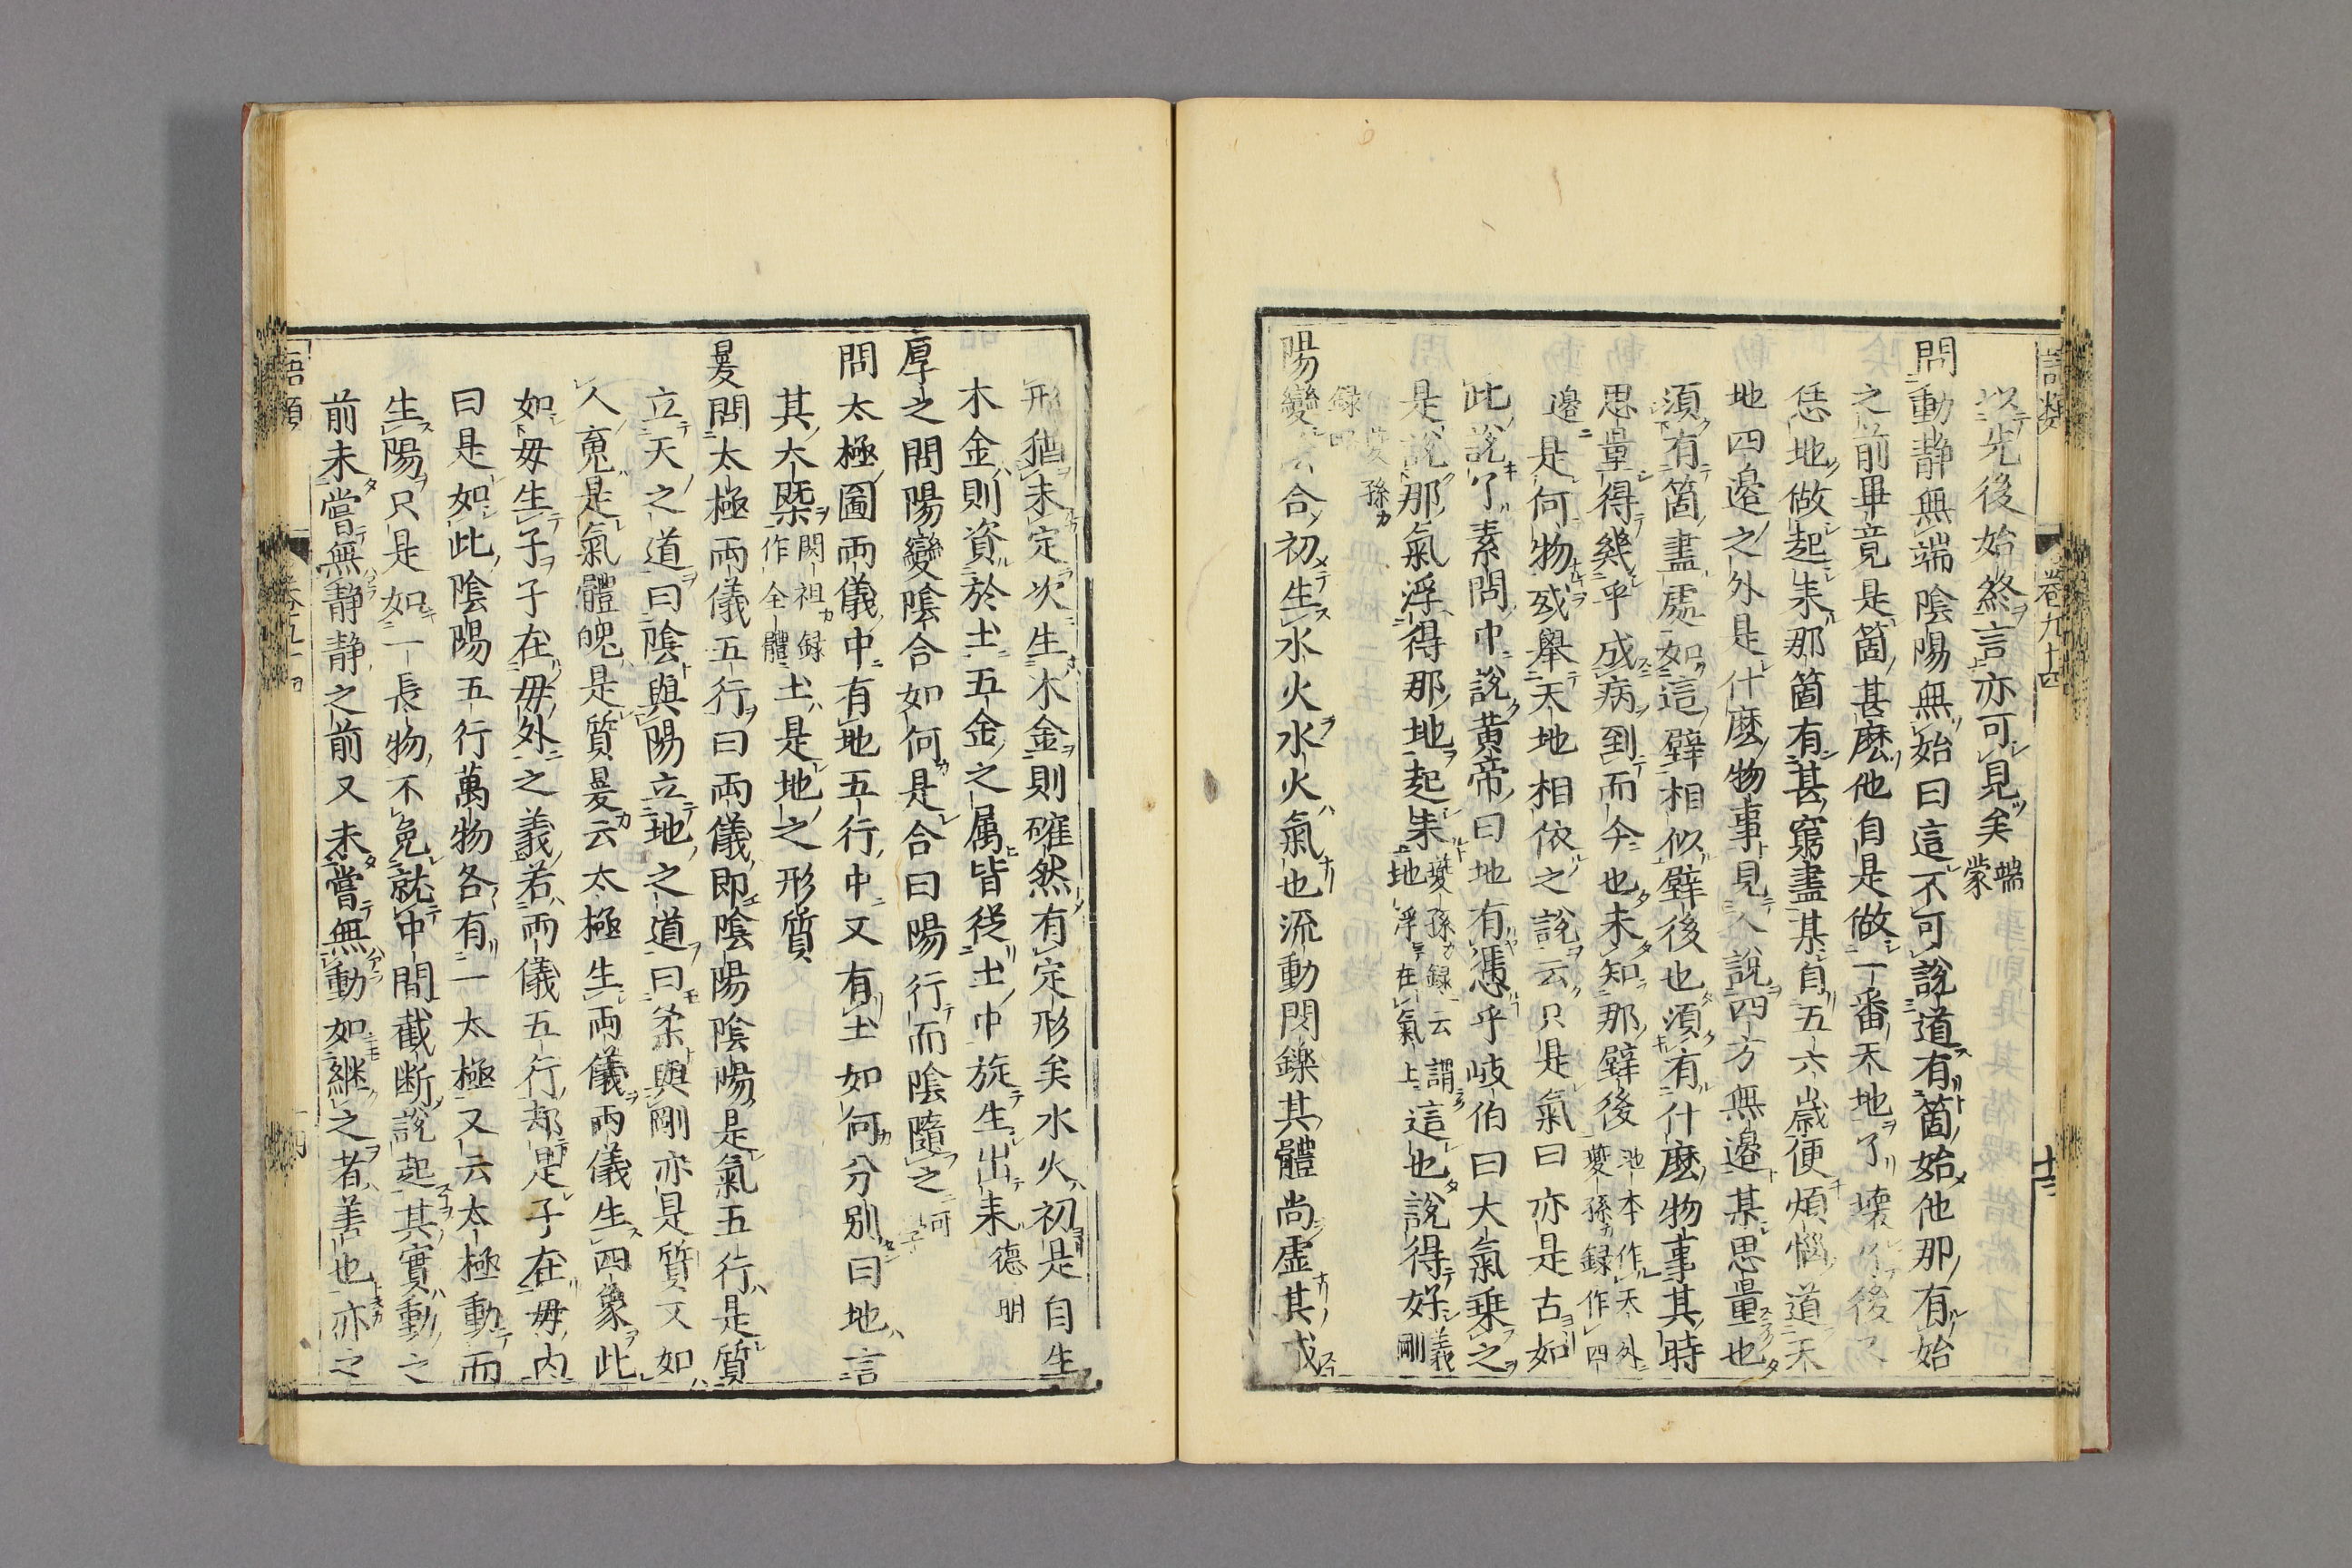 語類
卷九十四
十三
以先後始終言亦可見矣端蒙
問動静無端陰陽無始曰這不可說道有箇始他那有始
之前畢竟是箇甚麼他自是做一番天地了壞了後又
恁地做起來那箇有甚窮盡某自五六歳便煩惱道天
地四邊之外是什麼物事見人說四方無邊某思量也
須有箇盡處如這壁相似壁後也須有什麼物事其時
思量得幾乎成病到而今也未知那壁後池本作天外夔孫錄作四
邊是何物或舉天地相依之說云只是氣曰亦是古如
此說了素問中說黄帝曰地有憑乎岐伯曰大氣乗之
是說那氣浮得那地起來夔孫録云謂地浮在氣上這也說得好義剛
夔孫録略
陽變陰合初生水火水火氣也流動閃鑠其體尚虛其成
形猶未定次生木金則確然有定形矣水火初是自生
木金則資於土五金之属皆從土中旋生出来德明
厚之問陽變陰合如何是合曰陽行而陰隨之可學
問太極圖兩儀中有地五行中又有土如何分别曰地言
其大槩閎祖録作全體土是地之形質
㬊問太極兩儀五行曰兩儀即陰陽陰陽是氣五行是質
立天之道曰陰與陽立地之道曰柔與剛亦是質又如
人䰟是氣體魄是質㬊云太極生兩儀兩儀生四象此
如母生子子在母外之義若兩儀五行却是子在母内
曰是如此陰陽五行萬物各有一太極又云太極動而
生陽只是如一長物不免就中間截断說起其實動之
前未嘗無静静之前又未嘗無動如継之者善也亦之
語類
卷九十四